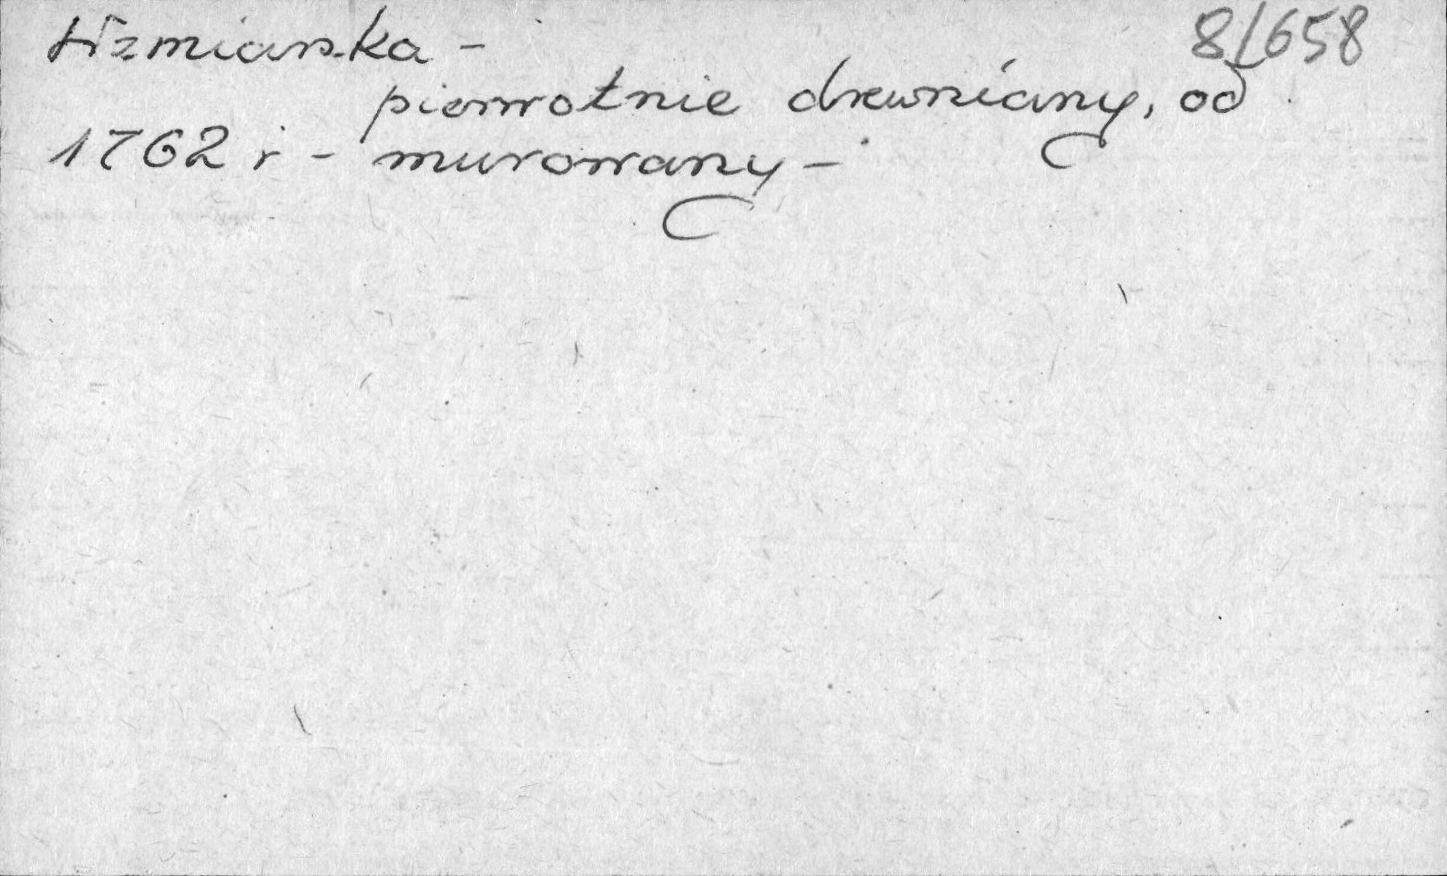 8/658
pierwotnie drewniany, od
1762 r - murowany -